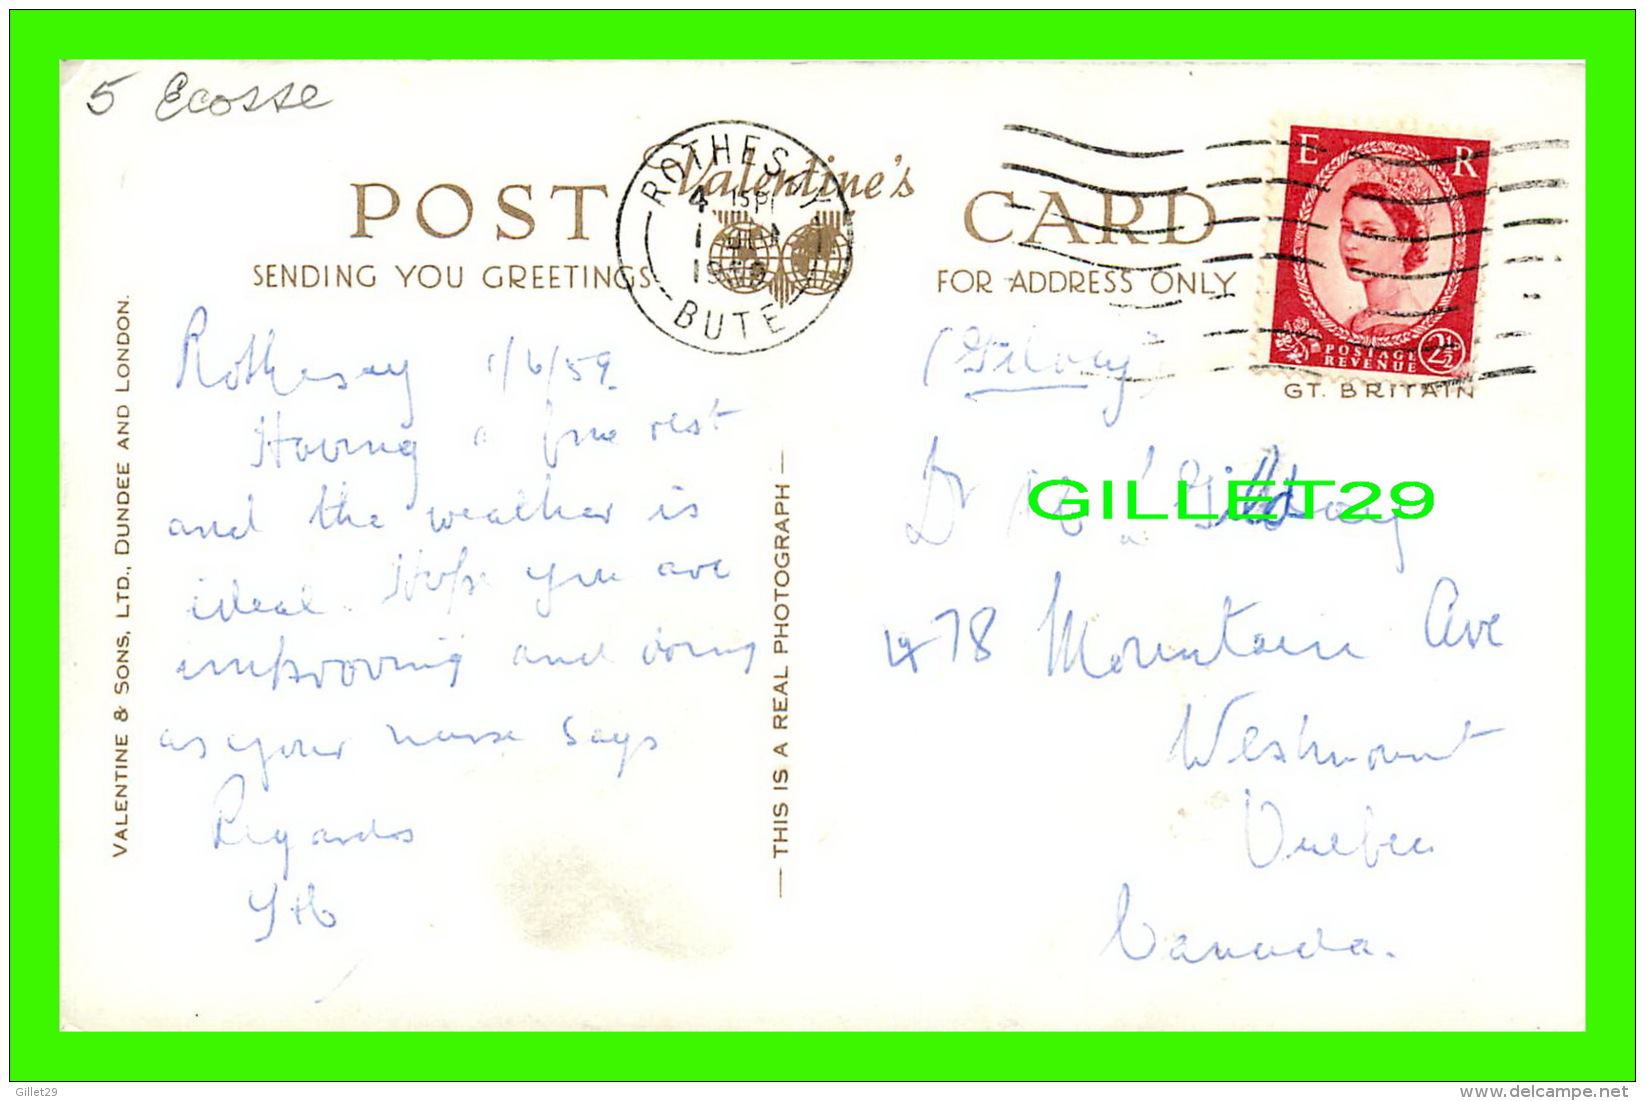 5 Ecosse
POST Valentine's CARD
SENDING YOU GREETINGS
FOR ADDRESS ONLY
ROTHESAY
4 15 PM
1 JUN
1959
BUTE
E R
POSTAGE
REVENUE
2½
GT. BRITAIN
Rothesay 1/6/59
Having a fine rest
and the weather is
ideal. Hope you are
improving and doing
as your nurse says
Regards
Dr
478 Mountain Ave
Westmount
Quebec
Canada.
VALENTINE & SONS, LTD., DUNDEE AND LONDON.
— THIS IS A REAL PHOTOGRAPH —
GILLET29
Gillet29